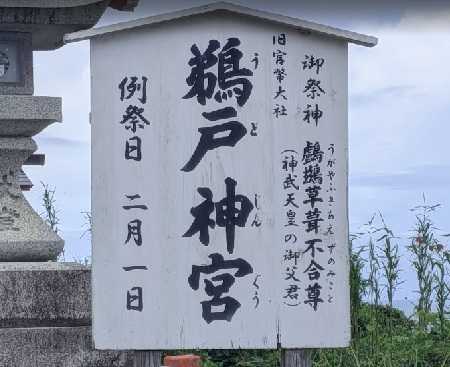 御祭神 鸕鷀草葺不合尊
うがやふきあえずのみこと
(神武天皇の御父君)
旧官幣大社
鵜戸神宮
うどじんぐう
例祭日 二月一日